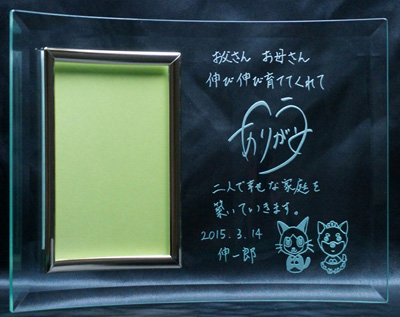 お父さん お母さん
伸び伸び育ててくれて
ありがとう
二人で幸せな家庭を
築いていきます。
2015.3.14
伸一郎